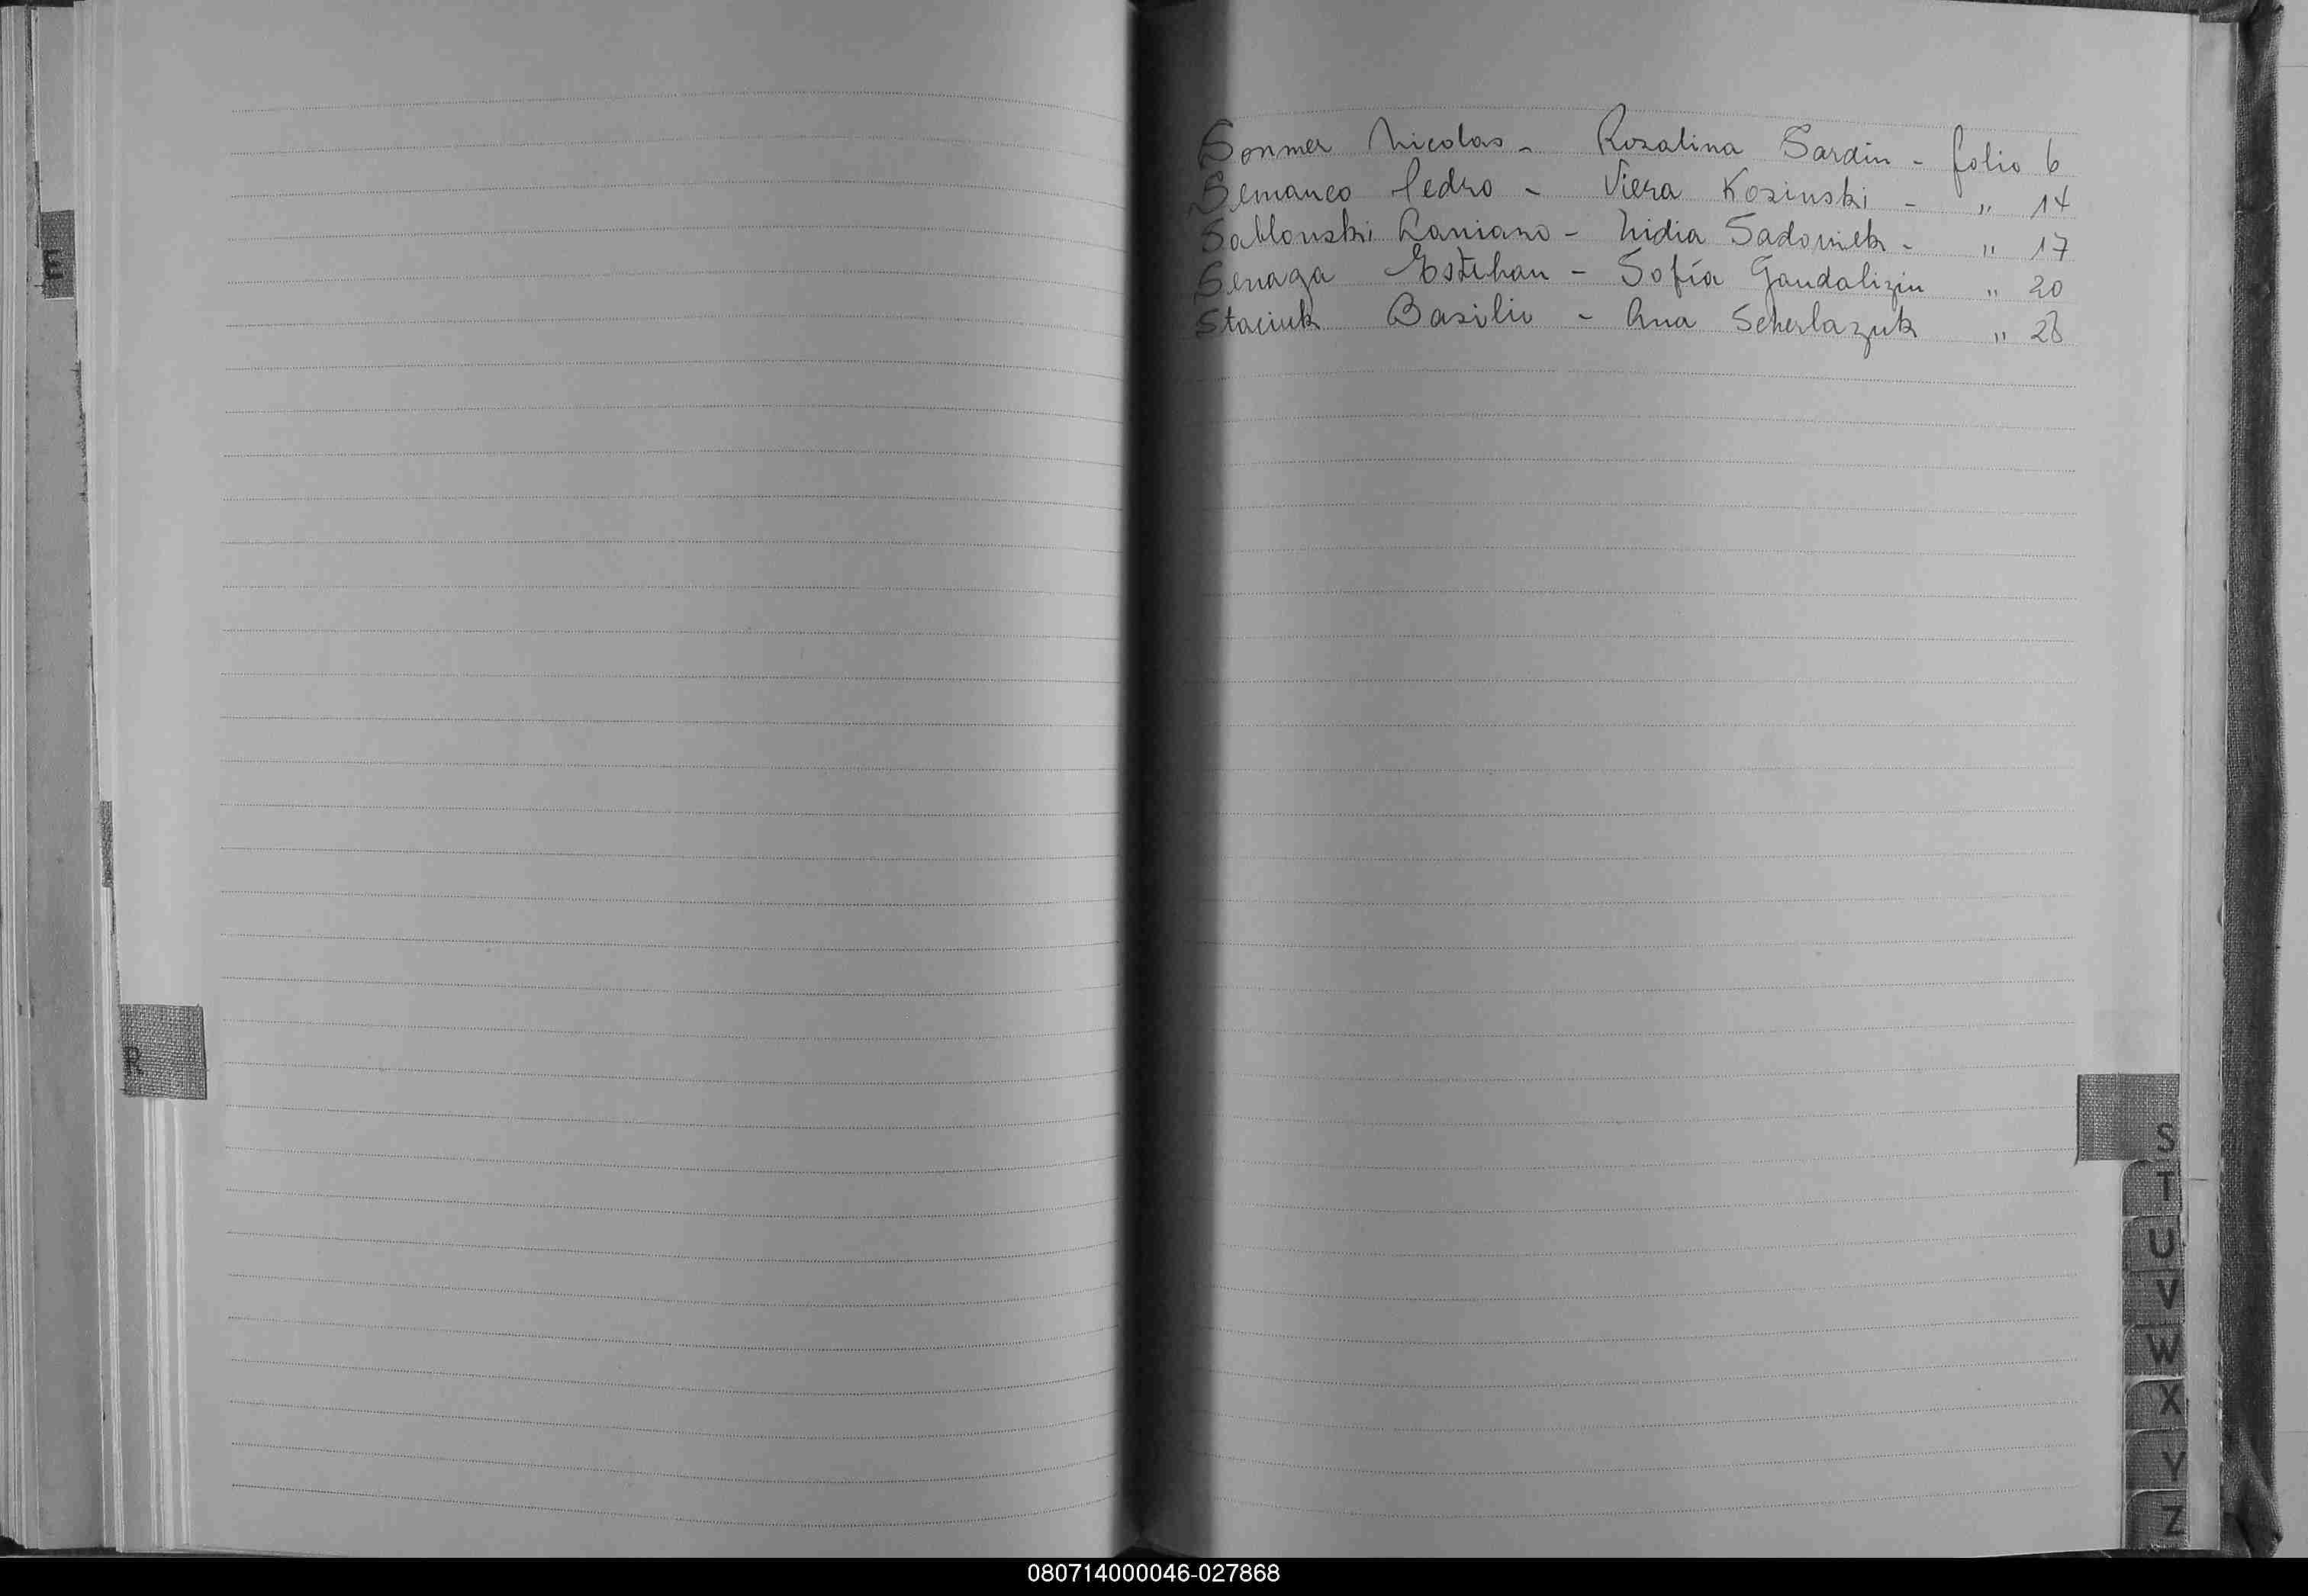 E
R
Sonmer Nicolas - Rozalina Sardin - folio 6
Semanco Pedro - Viera Kozinski - " 14
Sablonski Damiano - Lidia Sadownik - " 17
Senaga Esteban - Sofía Gandalizin " 20
Staciuk Basilio - Ana Scherlazuk " 28
S
T
U
V
W
X
Y
Z
080714000046-027868